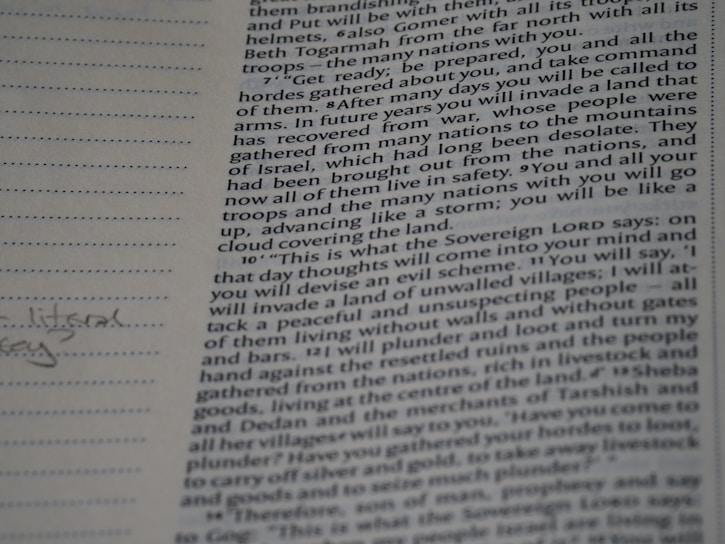 them brandishing
and Put will be with them,
helmets, 6also Gomer with all its troops
Beth Togarmah from the far north with all its
troops – the many nations with you.
7‘ “Get ready; be prepared, you and all the
hordes gathered about you, and take command
of them. 8After many days you will be called to
arms. In future years you will invade a land that
has recovered from war, whose people were
gathered from many nations to the mountains
of Israel, which had long been desolate. They
had been brought out from the nations, and
now all of them live in safety. 9You and all your
troops and the many nations with you will go
up, advancing like a storm; you will be like a
cloud covering the land.
10‘ “This is what the Sovereign LORD says: on
that day thoughts will come into your mind and
you will devise an evil scheme. 11You will say, ‘I
will invade a land of unwalled villages; I will at-
tack a peaceful and unsuspecting people – all
of them living without walls and without gates
and bars. 12I will plunder and loot and turn my
hand against the resettled ruins and the people
gathered from the nations, rich in livestock and
goods, living at the centre of the land.’ 13Sheba
and Dedan and the merchants of Tarshish and
all her villages will say to you, ‘Have you come to
plunder? Have you gathered your hordes to loot,
to carry off silver and gold, to take away livestock
and goods and to seize much plunder?’ ”
14‘Therefore, son of man, prophesy and say
to Gog: “This is what the Sovereign LORD says:
my people Israel are living in
You will
literal